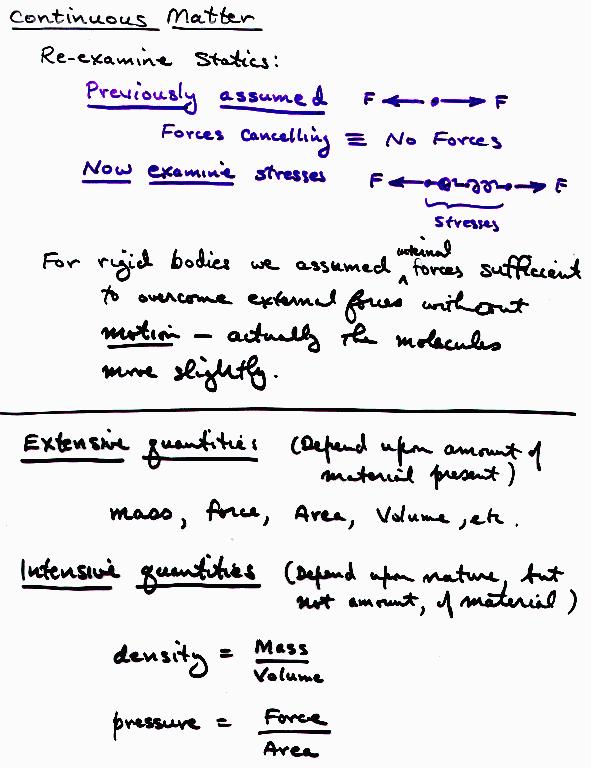 Continuous Matter
Re-examine Statics:
Previously assumed F F
Forces Cancelling ≡ No Forces
Now examine stresses F F
Stresses
internal
For rigid bodies we assumed ^ forces sufficient
to overcome external forces without
motion — actually the molecules
move slightly.
Extensive quantities (Depend upon amount of
material present)
mass, force, Area, Volume, etc.
Intensive quantities (Depend upon nature, but
not amount, of material)
density = Mass
Volume
pressure = Force
Area